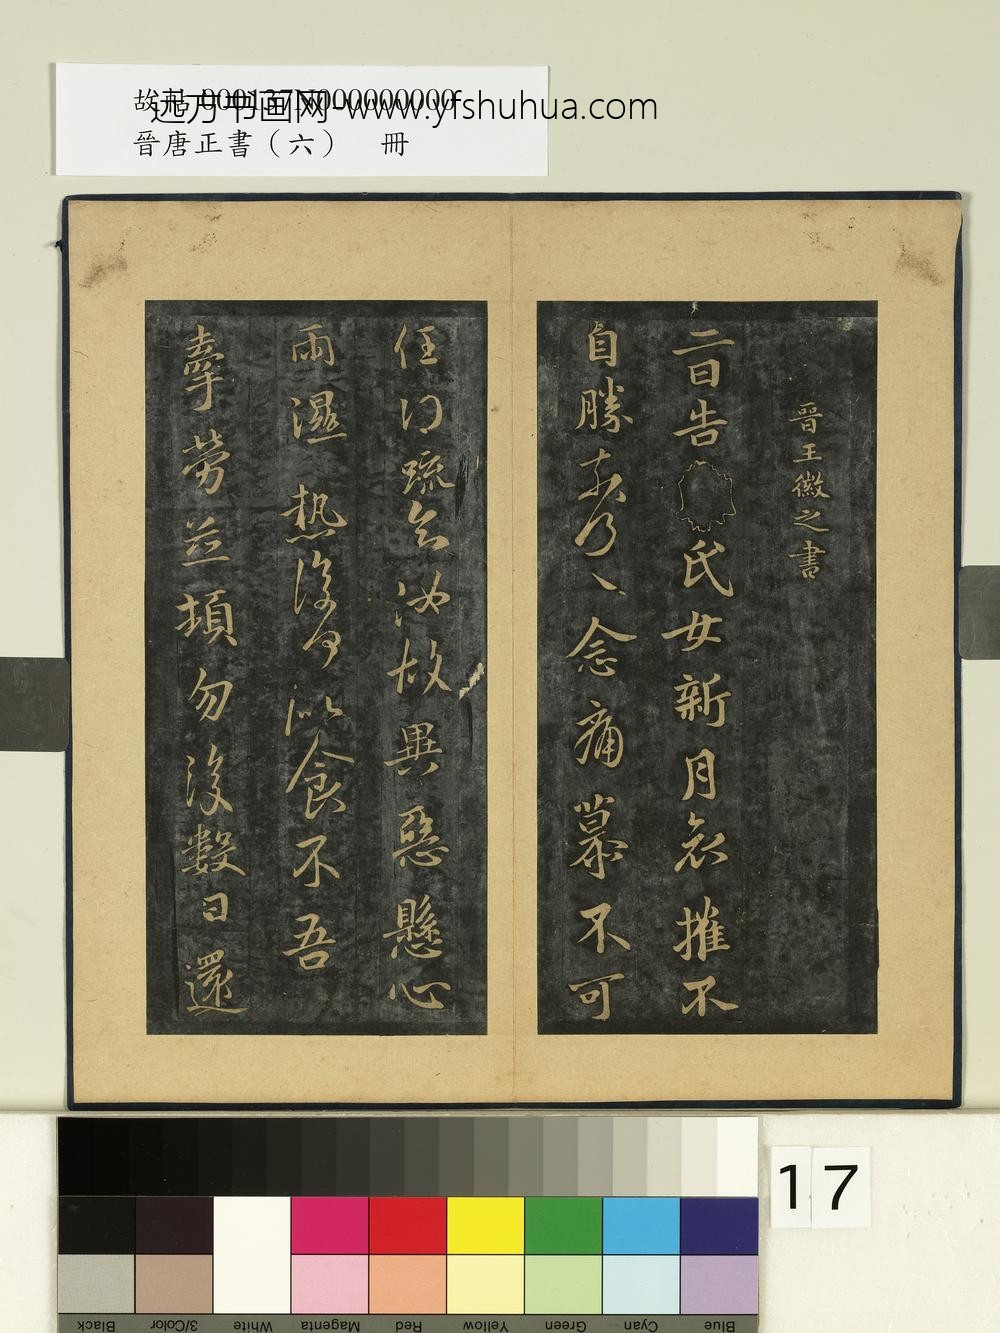 远方书画网-www.yfshuhua.com
晉唐正書（六） 冊
晉王徽之書
二日告氏女新月哀摧不
自勝奈何〻〻念痛慕不可
任得疏知汝故異惡懸心
雨濕熱復何似食不吾
牽勞並頓勿復數日還
17
Blue Cyan Green Yellow Red Magenta White 3/Color Black